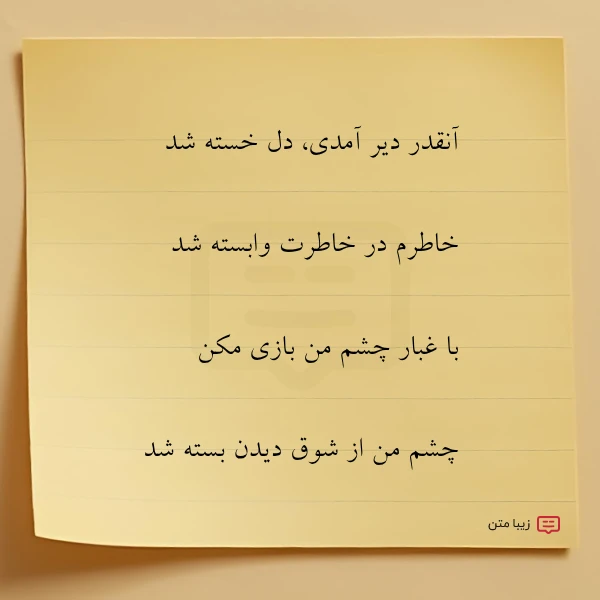 آنقدر دیر آمدی، دل خسته شد
خاطرم در خاطرت وابسته شد
با غبار چشم من بازی مکن
چشم من از شوق دیدن بسته شد
زیبا متن